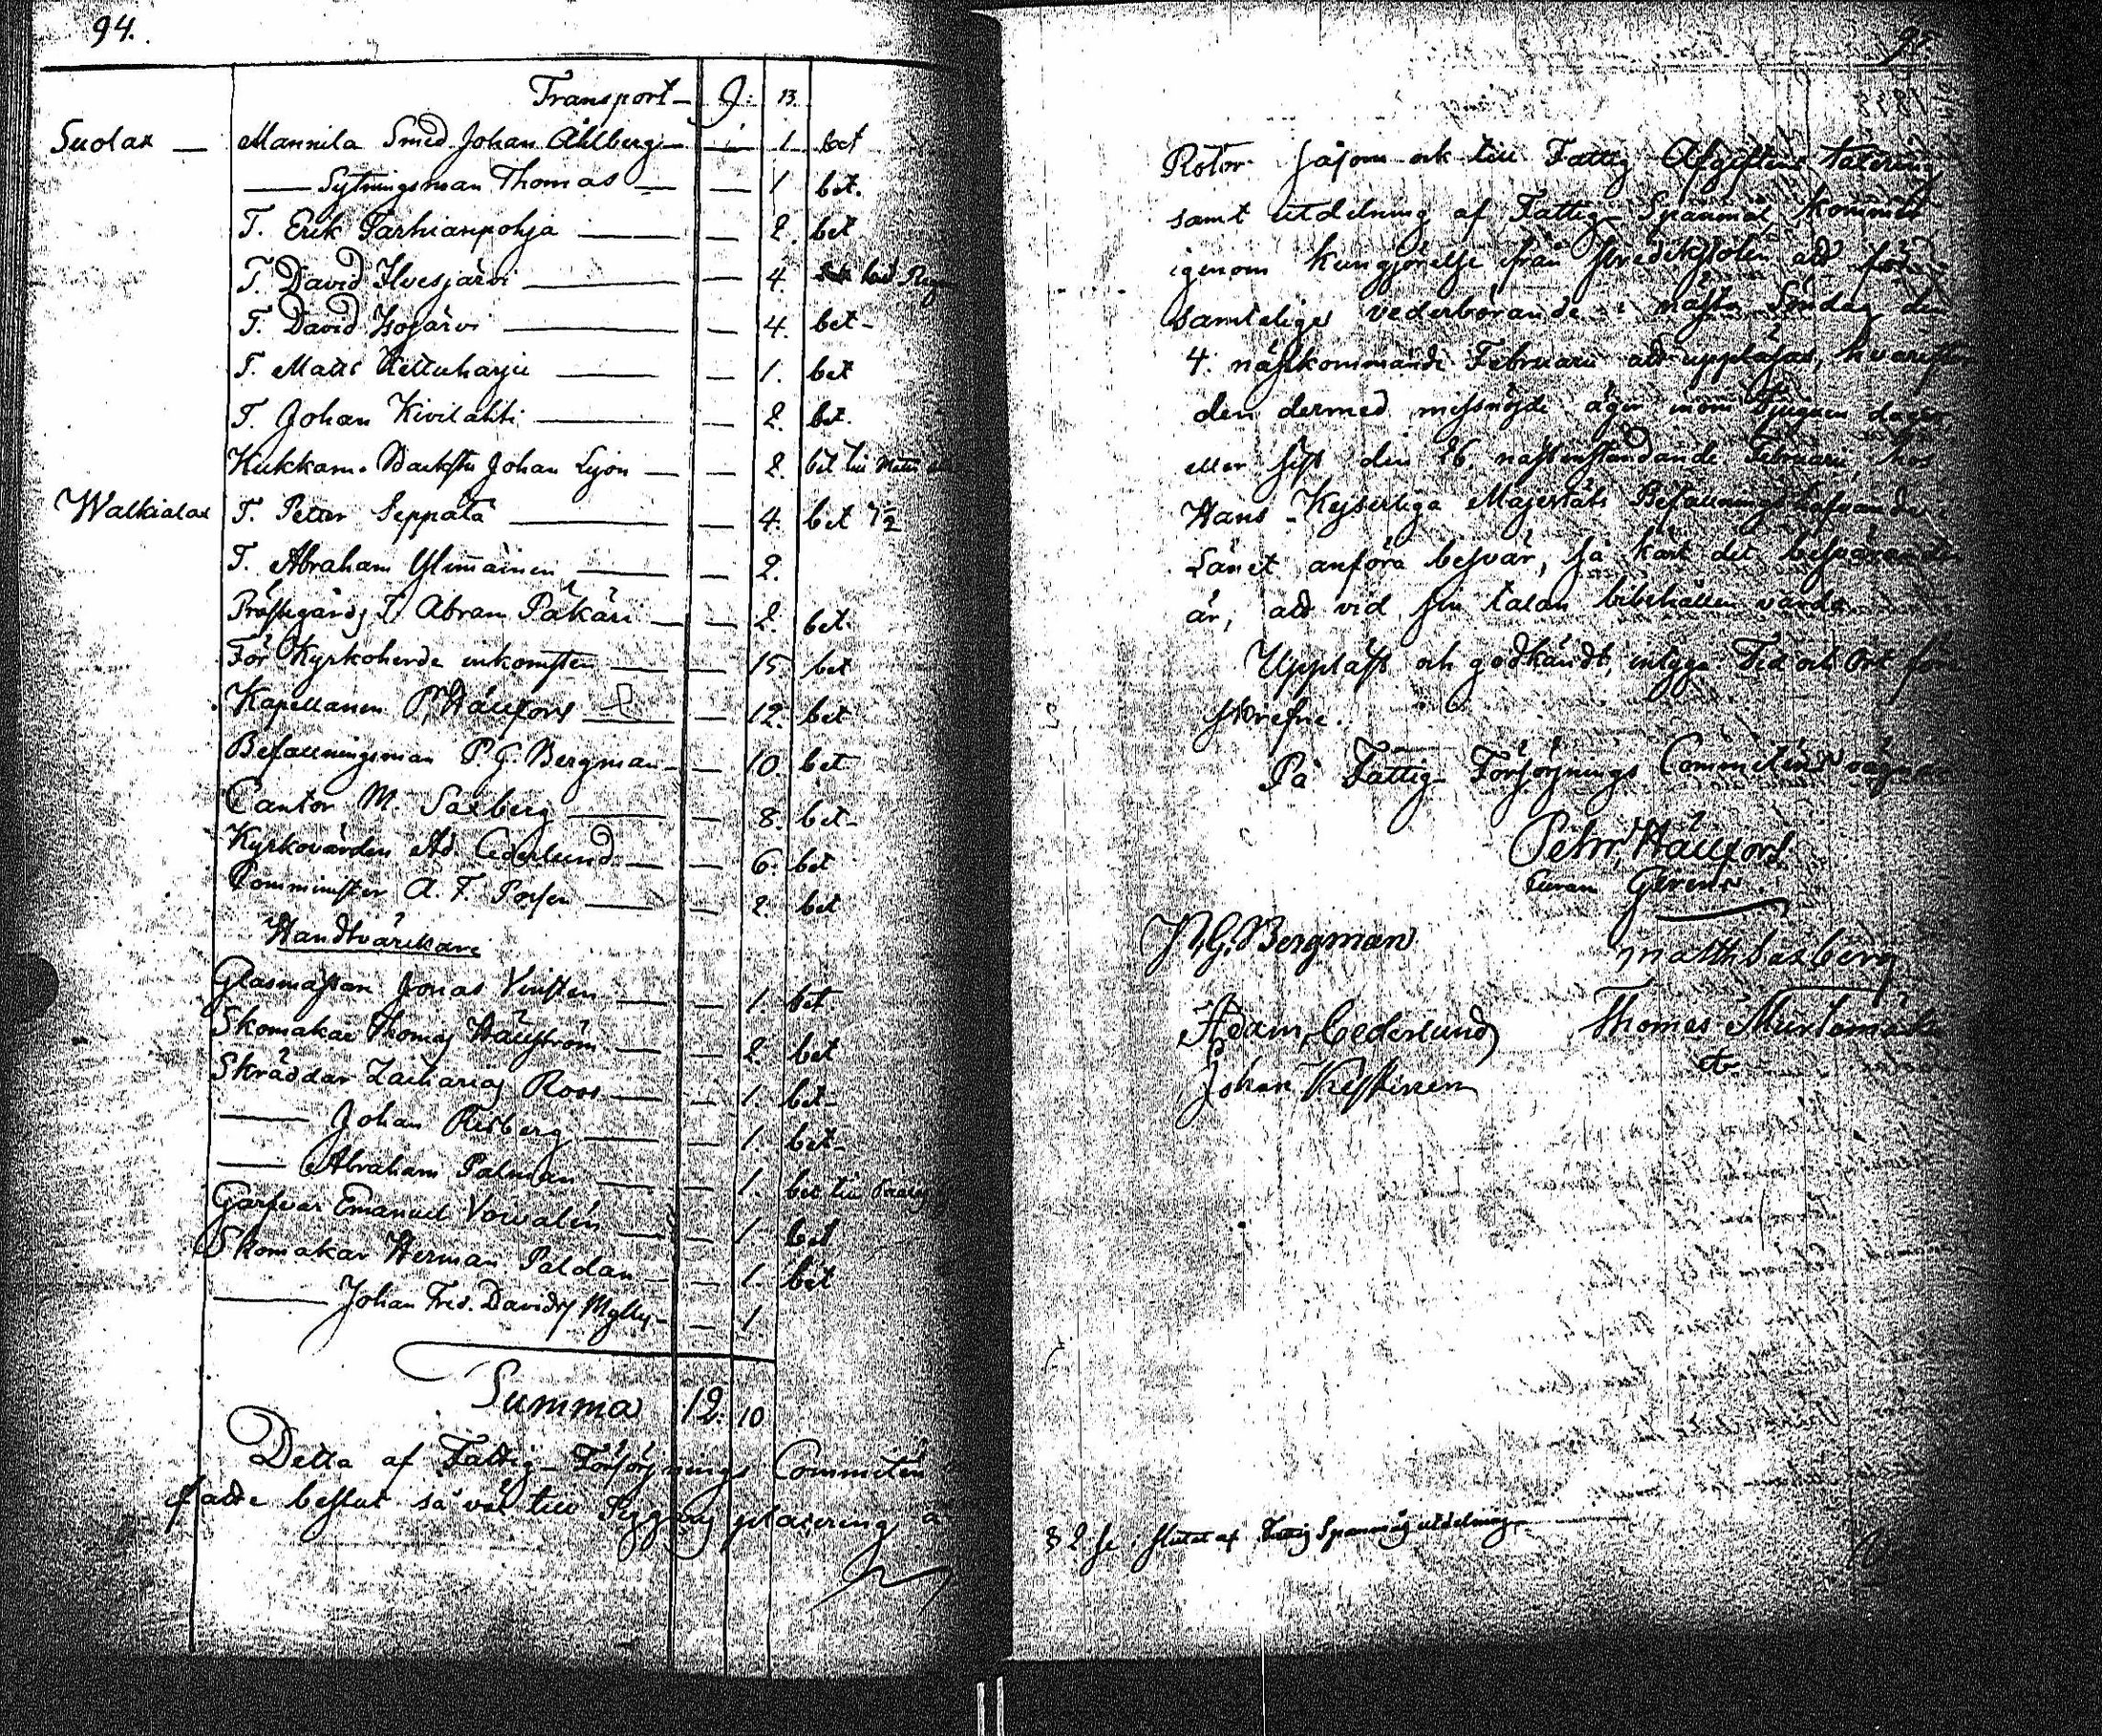 94.
Transport — 9: 13.
Suolax — Mannila Smed Johan Åhlberg — 1 bet
— Sytningsman Thomas — — 1 bet.
T. Erik Parhianpohja — — 2. bet
T. David Ilvesjärvi — — 4.
T. David Isojärvi — — 4. bet-
T. Matts Kettuharju — — 1. bet
T. Johan Kivilahti — — 2. bet.
Kukkam. Johan Lyon — — 2. bet till
Walkialax T. Petter Seppälä — — 4. bet
T. Abraham Ylimäinen — — 2.
Prästegårds T. Abram Päkäri — — 2. bet.
För Kyrkoherde inkomsten — — 15. bet
Kapellanen P. Hällfors — — 12. bet
Befallningsman P. G. Bergman — — 10. bet
Cantor M. Saxberg — — 8. bet-
Kyrkovärden Ad. Cederlund — — 6. bet
Comminister A. F. — — 2. bet
Handtvärckare
Glasmästar Jonas — — 1. bet.
Skomakar Thomas Hällström — — 2. bet
Skräddar Zacharias Roos — — 1. bet-
— Johan Risberg — — 1. bet-
— Abraham Palman — — 1. bet till
Garfvar Emanuel — — 1. bet
Skomakar Herman Paldan — — 1. bet
— Johan Fred. Davidss Mylly — — 1
Summa 12: 10
Detta af Fattig-Försörjnings Committén
fatte beslut så väl till
95.
Rotor såsom ock till Fattig Afgiftens taxering
samt utdelning af Fattig Spanmål, kommer
igenom kungjörelse från predikstolen att för
samtelige vederbörande nästa Söndag den
4. nästkommande Februarii att uppläsas, hvareft
den dermed missnöjde äger inom tjuguen dagar,
eller sist den 26. nästinstundande Februarii, hos
Hans Kejserliga Majestäts Befallningshafvande i
Länet anföra besvär, så kärt det besväranden
är, att vid sin talan bibehållen varda.
Uppläst och godkändt, intyga Tid och Ort för
skrefne.
På Fattig-Försörjnings Committéns vägnar
Petr. Hällfors
Curam Gerens.
P. G. Bergman Matth Saxberg
Adam Cederlund Thomas
Johan Keskinen
§ 2 se slutet af Fattig Spanmåls utdelning